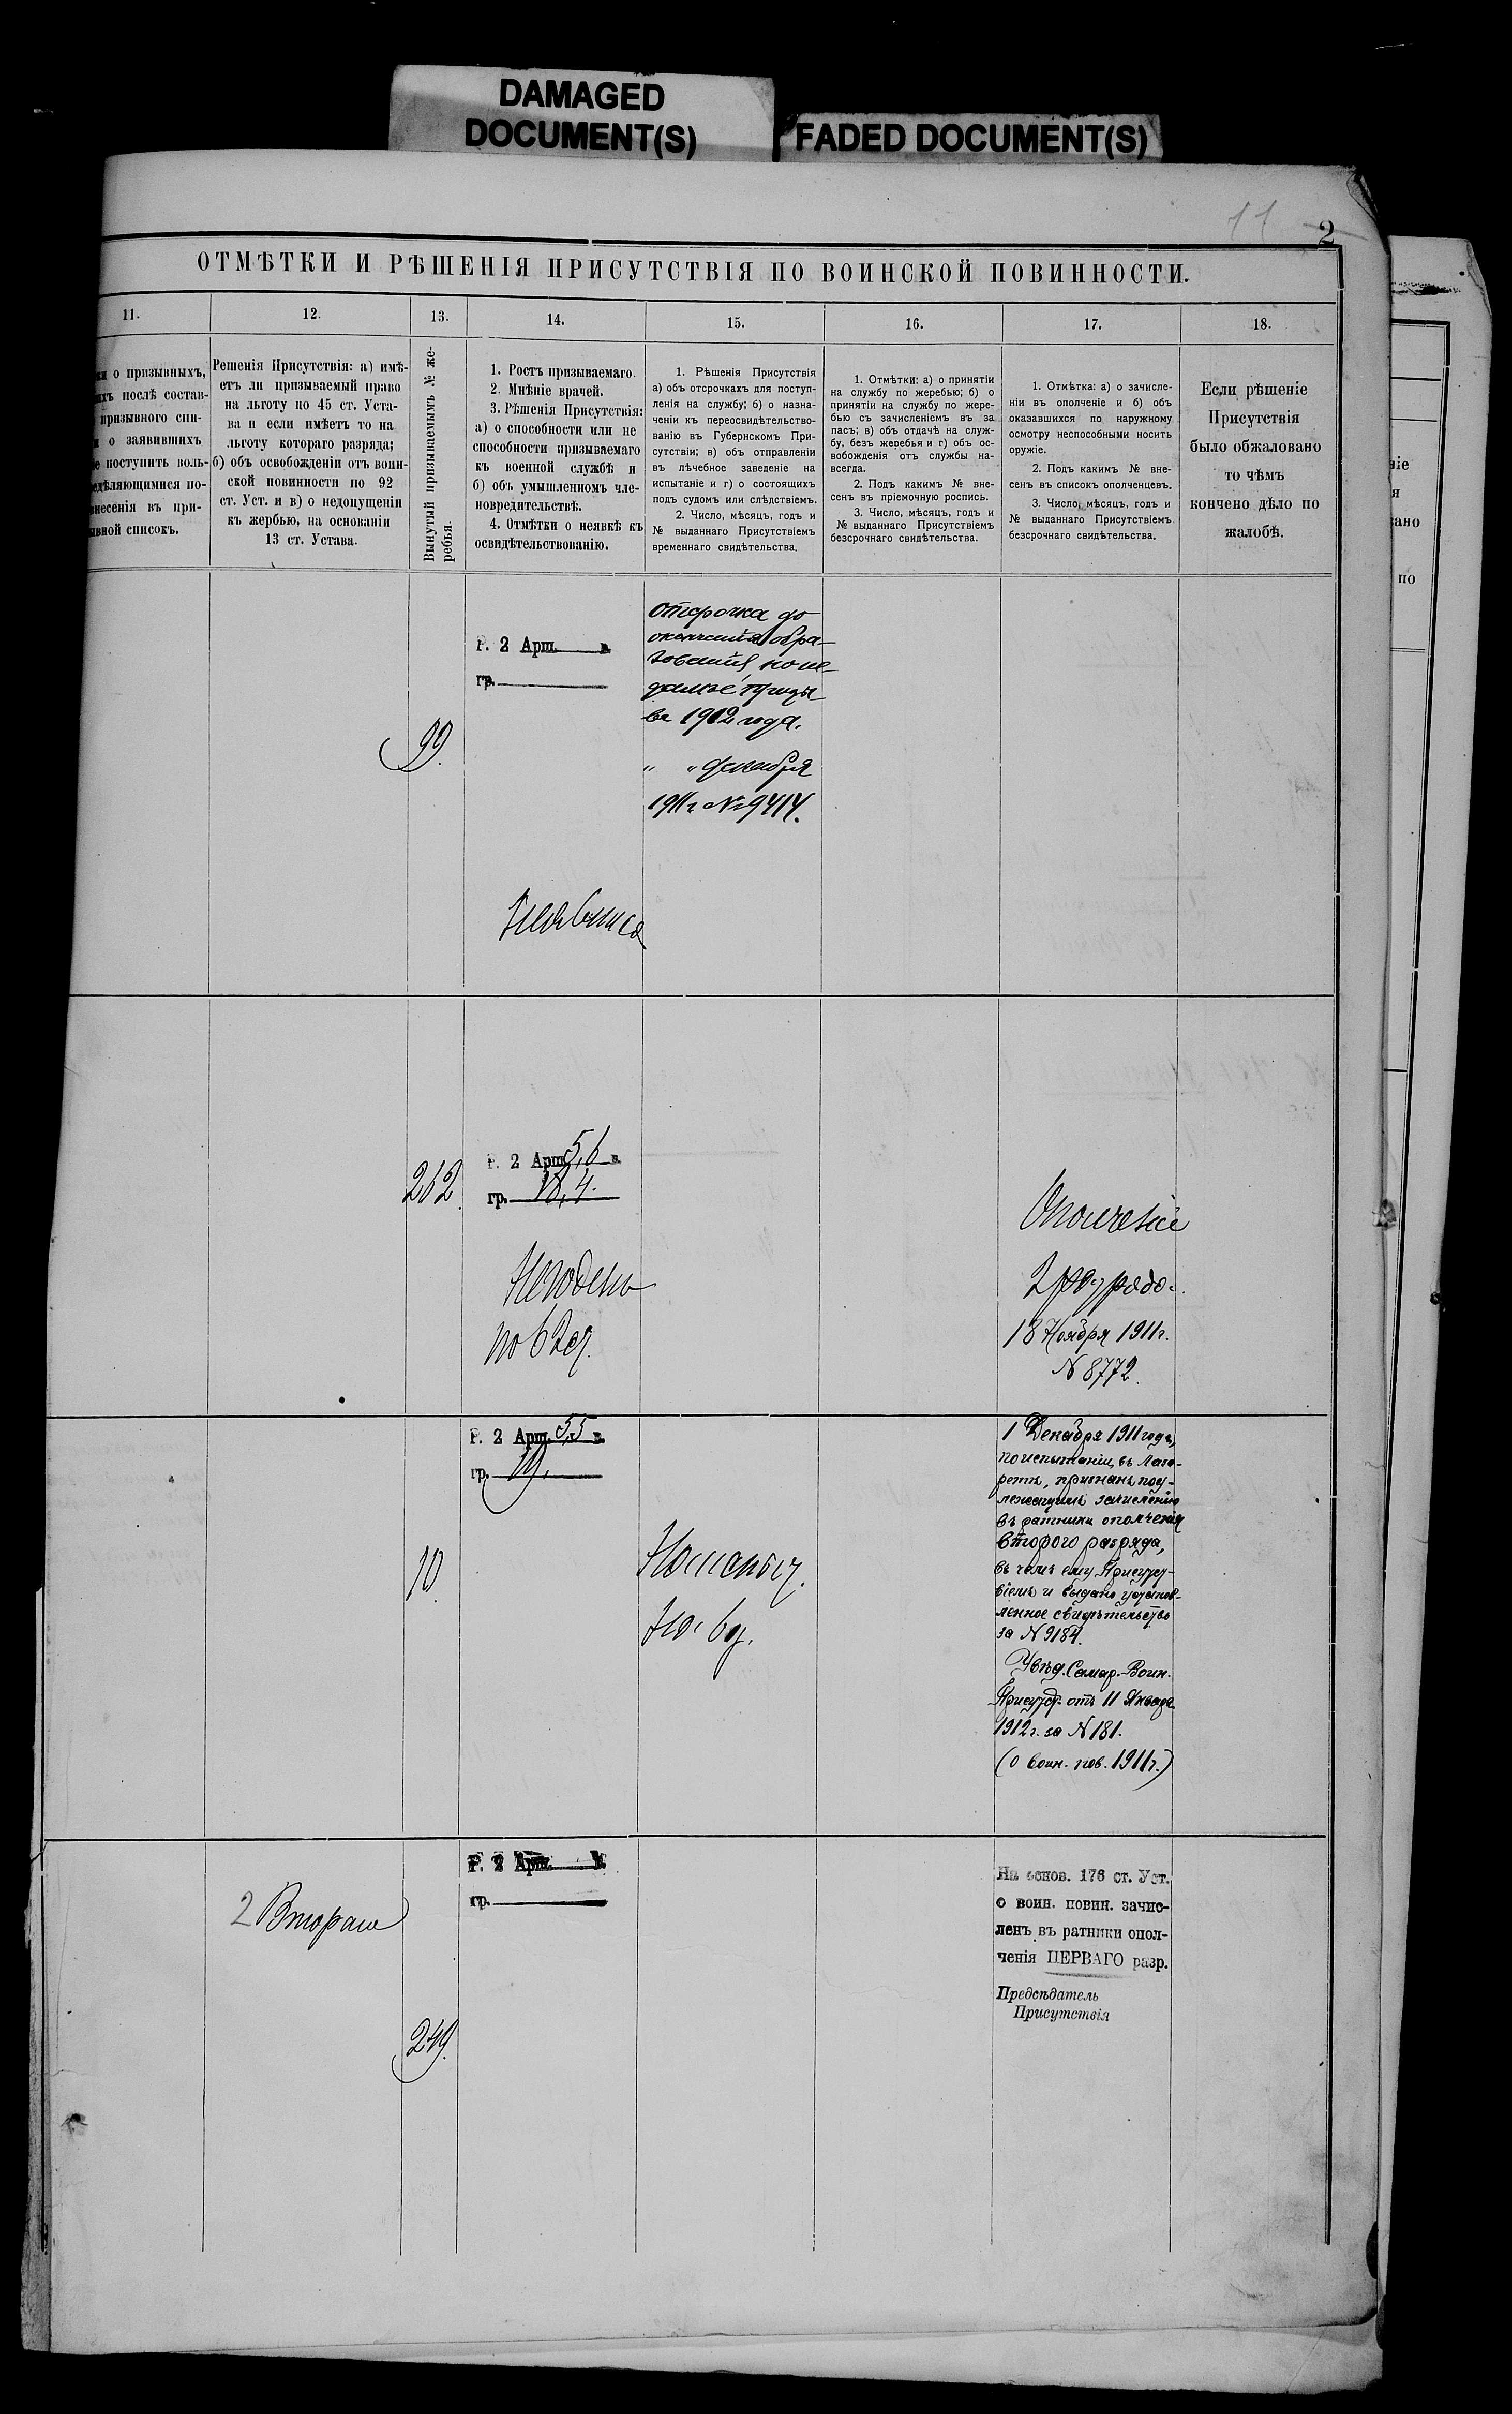 DAMAGED
DOCUMENT(S)
FADED DOCUMENT(S)
11
2
ОТМѢТКИ И РѢШЕНІЯ ПРИСУТСТВІЯ ПО ВОИНСКОЙ ПОВИННОСТИ.
11.
12.
13.
14.
15.
16.
17.
18.
о призывныхъ,
послѣ состав-
призывного спи-
о заявившихъ
поступить воль-
по-
внесенія въ при-
списокъ.
Решенія Присутствія: а) имѣ-
етъ ли призываемый право
на льготу по 45 ст. Уста-
ва и если имѣетъ то на
льготу котораго разряда;
б) объ освобожденіи отъ воин-
ской повинности по 92
ст. Уст. и в) о недопущеніи
къ жербью, на основаніи
13 ст. Устава.
Вынутый призываемымъ № же-
ребья.
1. Ростъ призываемаго.
2. Мнѣніе врачей.
3. Рѣшенія Присутствія:
а) о способности или не
способности призываемаго
къ военной службѣ и
б) объ умышленномъ чле-
новредительствѣ.
4. Отмѣтки о неявкѣ къ
освидѣтельствованію.
1. Рѣшенія Присутствія
а) объ отсрочкахъ для поступ-
ленія на службу; б) о назна-
ченіи къ переосвидѣтельство-
ванію въ Губернскомъ При-
сутствіи; в) объ отправленіи
въ лѣчебное заведеніе на
испытаніе и г) о состоящихъ
подъ судомъ или слѣдствіемъ.
2. Число, мѣсяцъ, годъ и
№ выданнаго Присутствіемъ
временнаго свидѣтельства.
1. Отмѣтки: а) о принятіи
на службу по жеребью; б) о
принятіи на службу по жере-
бью съ зачисленіемъ въ за
пасъ; в) объ отдачѣ на служ-
бу, безъ жеребья и г) объ ос-
вобожденія отъ службы на-
всегда.
2. Подъ какимъ № вне-
сенъ въ пріемочную роспись.
3. Число, мѣсяцъ, годъ и
№ выданнаго Присутствіемъ
безсрочнаго свидѣтельства.
1. Отмѣтка: а) о зачисле-
ніи въ ополченіе и б) объ
оказавшихся по наружному
осмотру неспособными носить
оружіе.
2. Подъ какимъ № вне-
сенъ въ списокъ ополченцевъ.
3. Число, мѣсяцъ, годъ и
№ выданнаго Присутствіемъ
безсрочнаго свидѣтельства.
Если рѣшеніе
Присутствія
было обжаловано
то чѣмъ
кончено дѣло по
жалобѣ.
по
99.
Р. 2 Арш. в.
гр.
Неявился
Отсрочка до
окончанія обра-
зованія, но не
далѣе призы
ва 1912 года.
" " декабря
1911 г. № 9414.
262.
Р. 2 Арш. 5,6 в.
гр. 18,4.
Негоденъ
Ополченіе
2 разряда.
18 Ноября 1911 г.
N 8772.
10
Р. 2 Арш. 5,5 в.
гр. 19.
На испыт.
1 Декабря 1911 года,
по испытаніи въ Лаза-
ретѣ, признанъ под-
лежащимъ зачисленію
въ ратники ополченія
второго разряда,
въ чемъ ему Присутст-
віемъ и выдано установ-
ленное свидѣтельство
за N 9184.
Увѣд. Самар. Воин.
Присутст. отъ 11 Января
1912 г. за N 181.
(о воин. пов. 1911 г.)
2 Втораго
249.
Р. 2 Арш. в.
гр.
На основ. 176 ст. Уст.
о воин. повин. зачис-
ленъ въ ратники опол-
ченія ПЕРВАГО разр.
Предсѣдатель
Присутствія